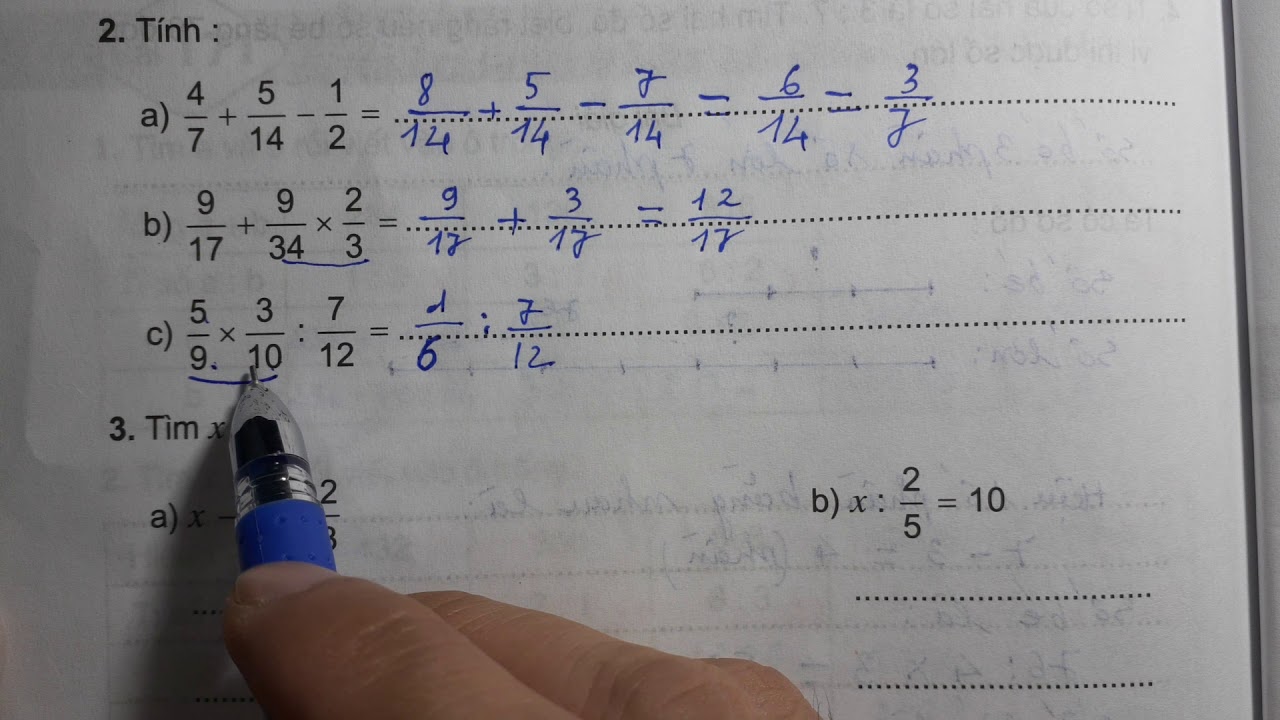 2. Tính :
a) 4/7 + 5/14 − 1/2 = 8/14 + 5/14 − 7/14 = 6/14 = 3/7
b) 9/17 + 9/34 × 2/3 = 9/17 + 3/17 = 12/17
c) 5/9 × 3/10 : 7/12 = 1/6 : 7/12
3. Tìm x
a) x − 2/3
b) x : 2/5 = 10